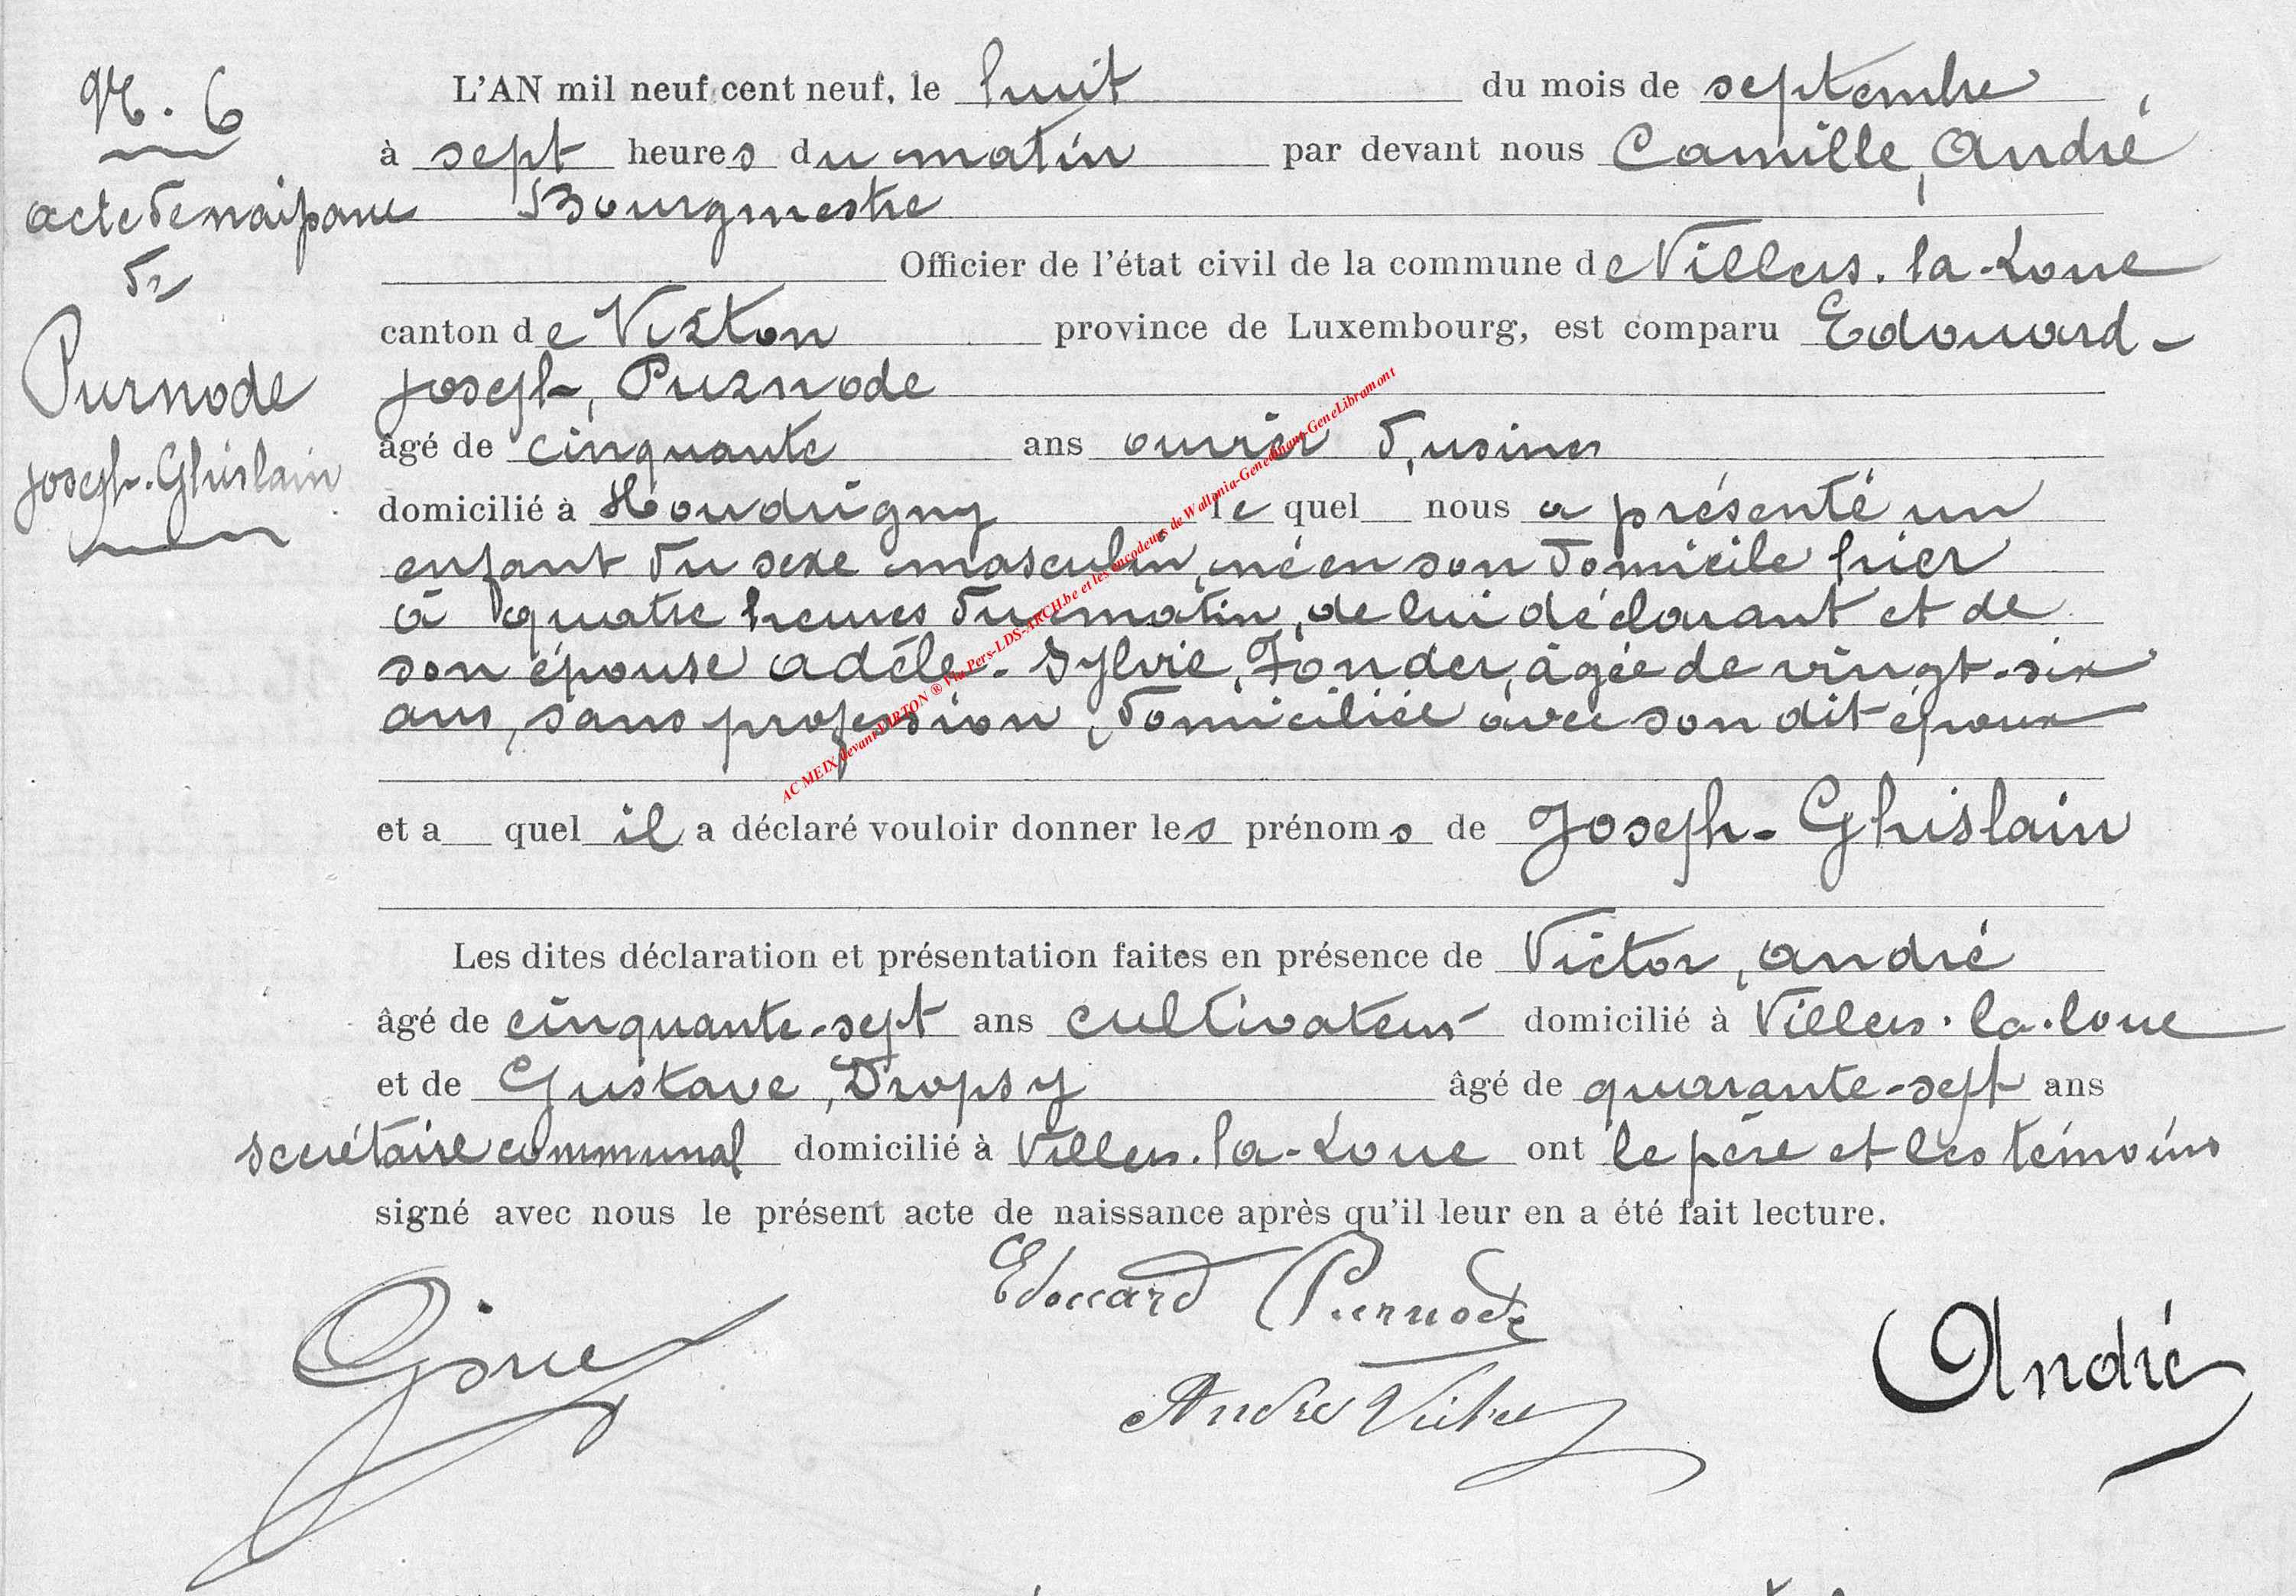 N. 6
acte de naissance
de
Purnode
Joseph-Ghislain
L'AN mil neuf cent neuf, le huit du mois de septembre
à sept heures du matin par devant nous Camille, André
Bourgmestre
Officier de l'état civil de la commune de Villers-la-Loue
canton de Virton province de Luxembourg, est comparu Edouard-
Joseph, Purnode
âgé de cinquante ans ouvrier d'usines
domicilié à Houdrigny lequel nous a présenté un
enfant du sexe masculin, né en son domicile hier
à quatre heures du matin, de lui déclarant et de
son épouse Adèle-Sylvie, Fonder, âgée de vingt-six
ans, sans profession, domiciliée avec son dit époux
et a quel il a déclaré vouloir donner les prénoms de Joseph-Ghislain
Les dites déclaration et présentation faites en présence de Victor, André
âgé de cinquante-sept ans cultivateur domicilié à Villers-la-loue
et de Gustave, Dropsy âgé de quarante-sept ans
secrétaire communal domicilié à Villers-la-Loue ont le père et les témoins
signé avec nous le présent acte de naissance après qu'il leur en a été fait lecture.
Edouard Purnode
André
André Victor
AC MEIX devant VIRTON ® Via Pers-LDS-ARCH.be et les encodeurs de Wallonia-Genedinant-GeneLibramont